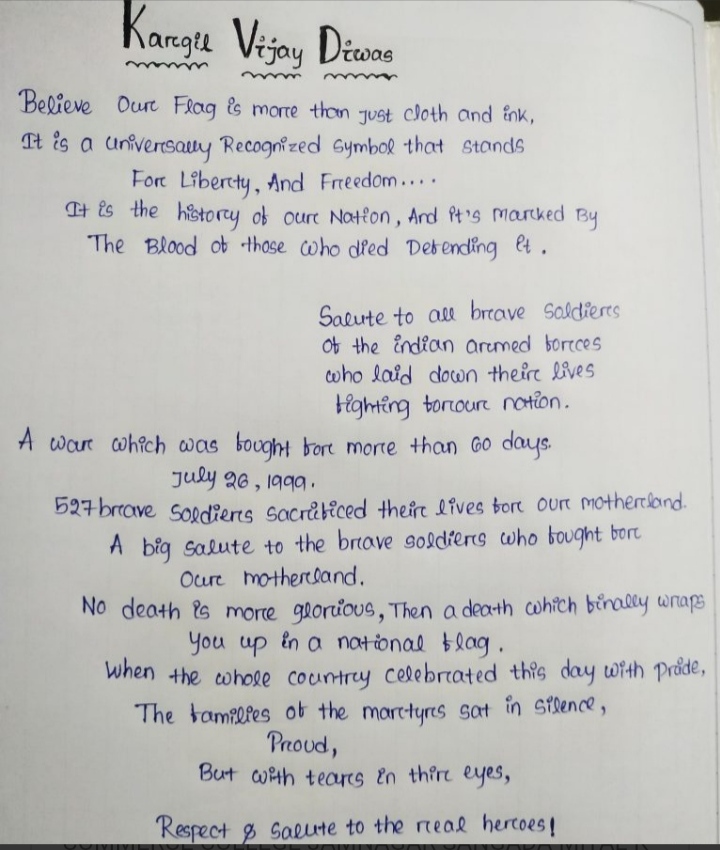 Kargil Vijay Diwas
Believe Our Flag is more than just cloth and ink,
It is a universally Recognized symbol that stands
For Liberty, And Freedom....
It is the history of our Nation, And it's marked By
The Blood of those who died Defending it.
Salute to all brave soldiers
of the indian armed forces
who laid down their lives
fighting for our nation.
A war which was fought for more than 60 days.
July 26, 1999.
527 brave soldiers sacrificed their lives for our motherland.
A big salute to the brave soldiers who fought for
our motherland.
No death is more glorious, Then a death which finally wraps
you up in a national flag.
When the whole country celebrated this day with pride,
The families of the martyrs sat in silence,
Proud,
But with tears in thir eyes,
Respect & salute to the real heroes!